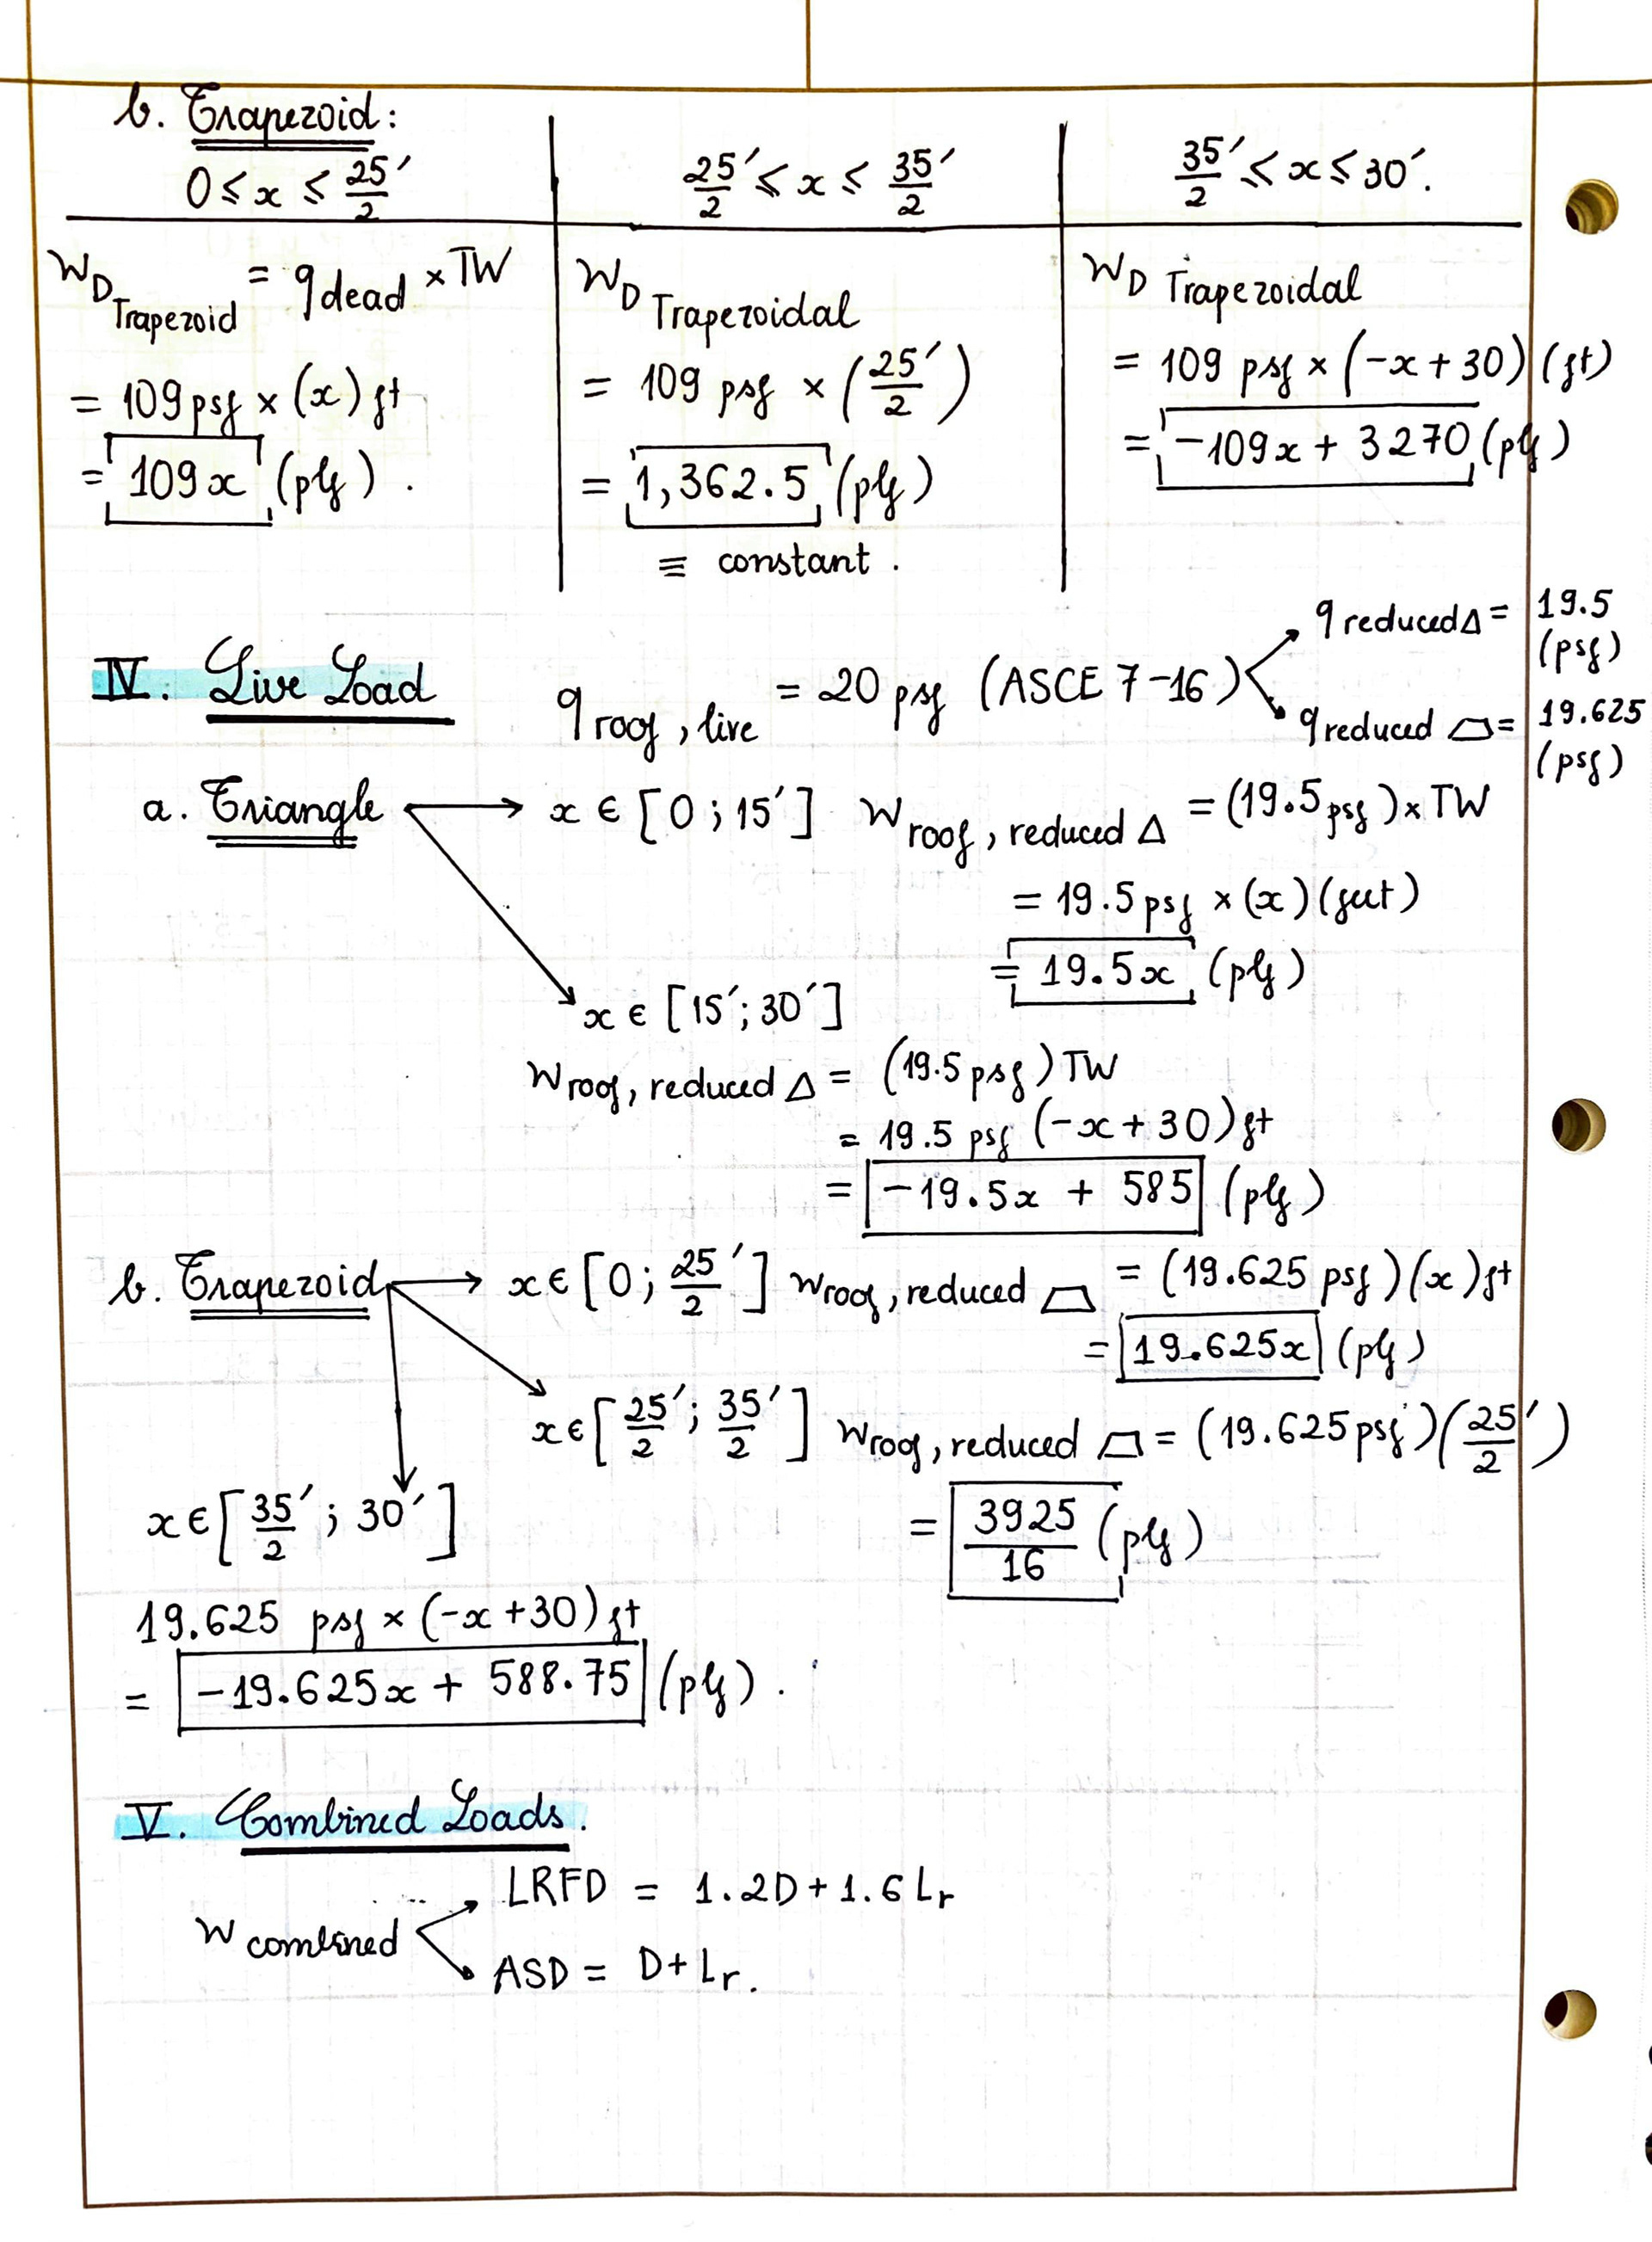 b. Trapezoid:
0 ≤ x ≤ 25′/2
W_D Trapezoid = q dead × TW
= 109 psf × (x) ft
= 109x (plf).
25′/2 ≤ x ≤ 35′/2
W_D Trapezoidal
= 109 psf × (25′/2)
= 1,362.5 (plf)
≡ constant.
35′/2 ≤ x ≤ 30′.
W_D Trapezoidal
= 109 psf × (-x + 30) (ft)
= -109x + 3270 (plf)
IV. Live Load
q roof, live = 20 psf (ASCE 7-16)
q reduced Δ = 19.5 (psf)
q reduced ⏢ = 19.625 (psf)
a. Triangle → x ∈ [0; 15′] W roof, reduced Δ = (19.5 psf) × TW
= 19.5 psf × (x) (feet)
= 19.5x (plf)
x ∈ [15′; 30′]
W roof, reduced Δ = (19.5 psf) TW
= 19.5 psf (-x + 30) ft
= -19.5x + 585 (plf)
b. Trapezoid → x ∈ [0; 25′/2] W roof, reduced ⏢ = (19.625 psf)(x) ft
= 19.625x (plf)
x ∈ [25′/2; 35′/2] W roof, reduced ⏢ = (19.625 psf)(25′/2)
= 3925/16 (plf)
x ∈ [35′/2; 30′]
19.625 psf × (-x + 30) ft
= -19.625x + 588.75 (plf).
V. Combined Loads.
W combined
LRFD = 1.2D + 1.6 Lr
ASD = D + Lr.